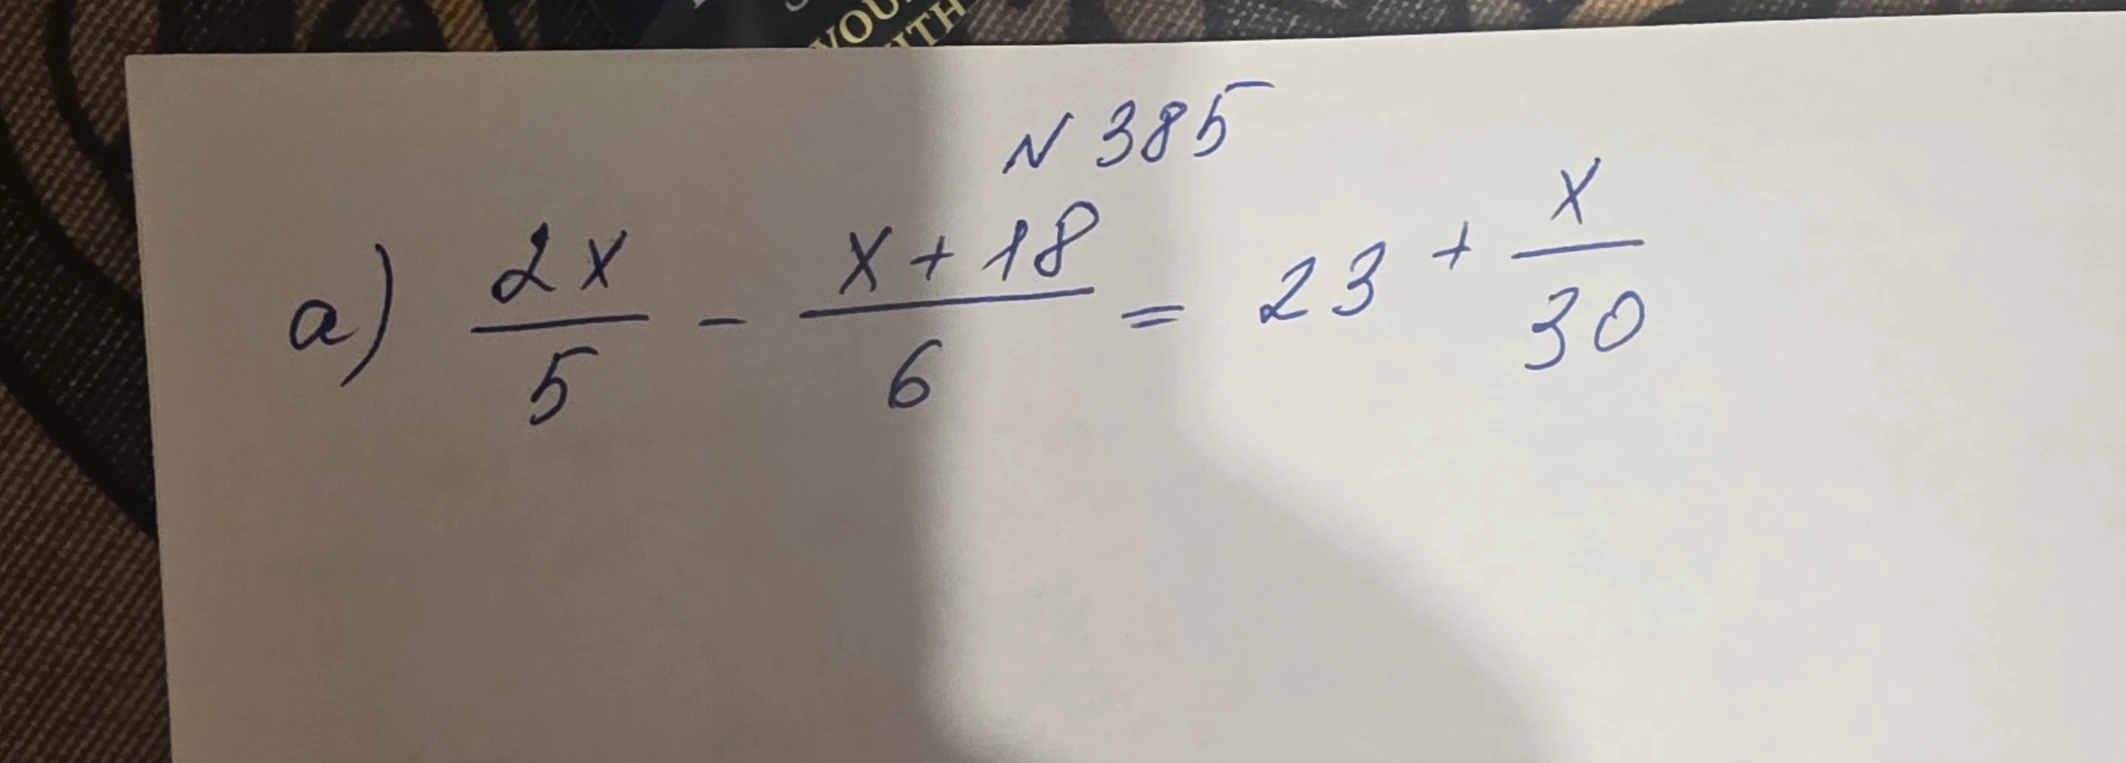 YOU
ITH
N 385
a) 2x/5 - x+18/6 = 23 + x/30